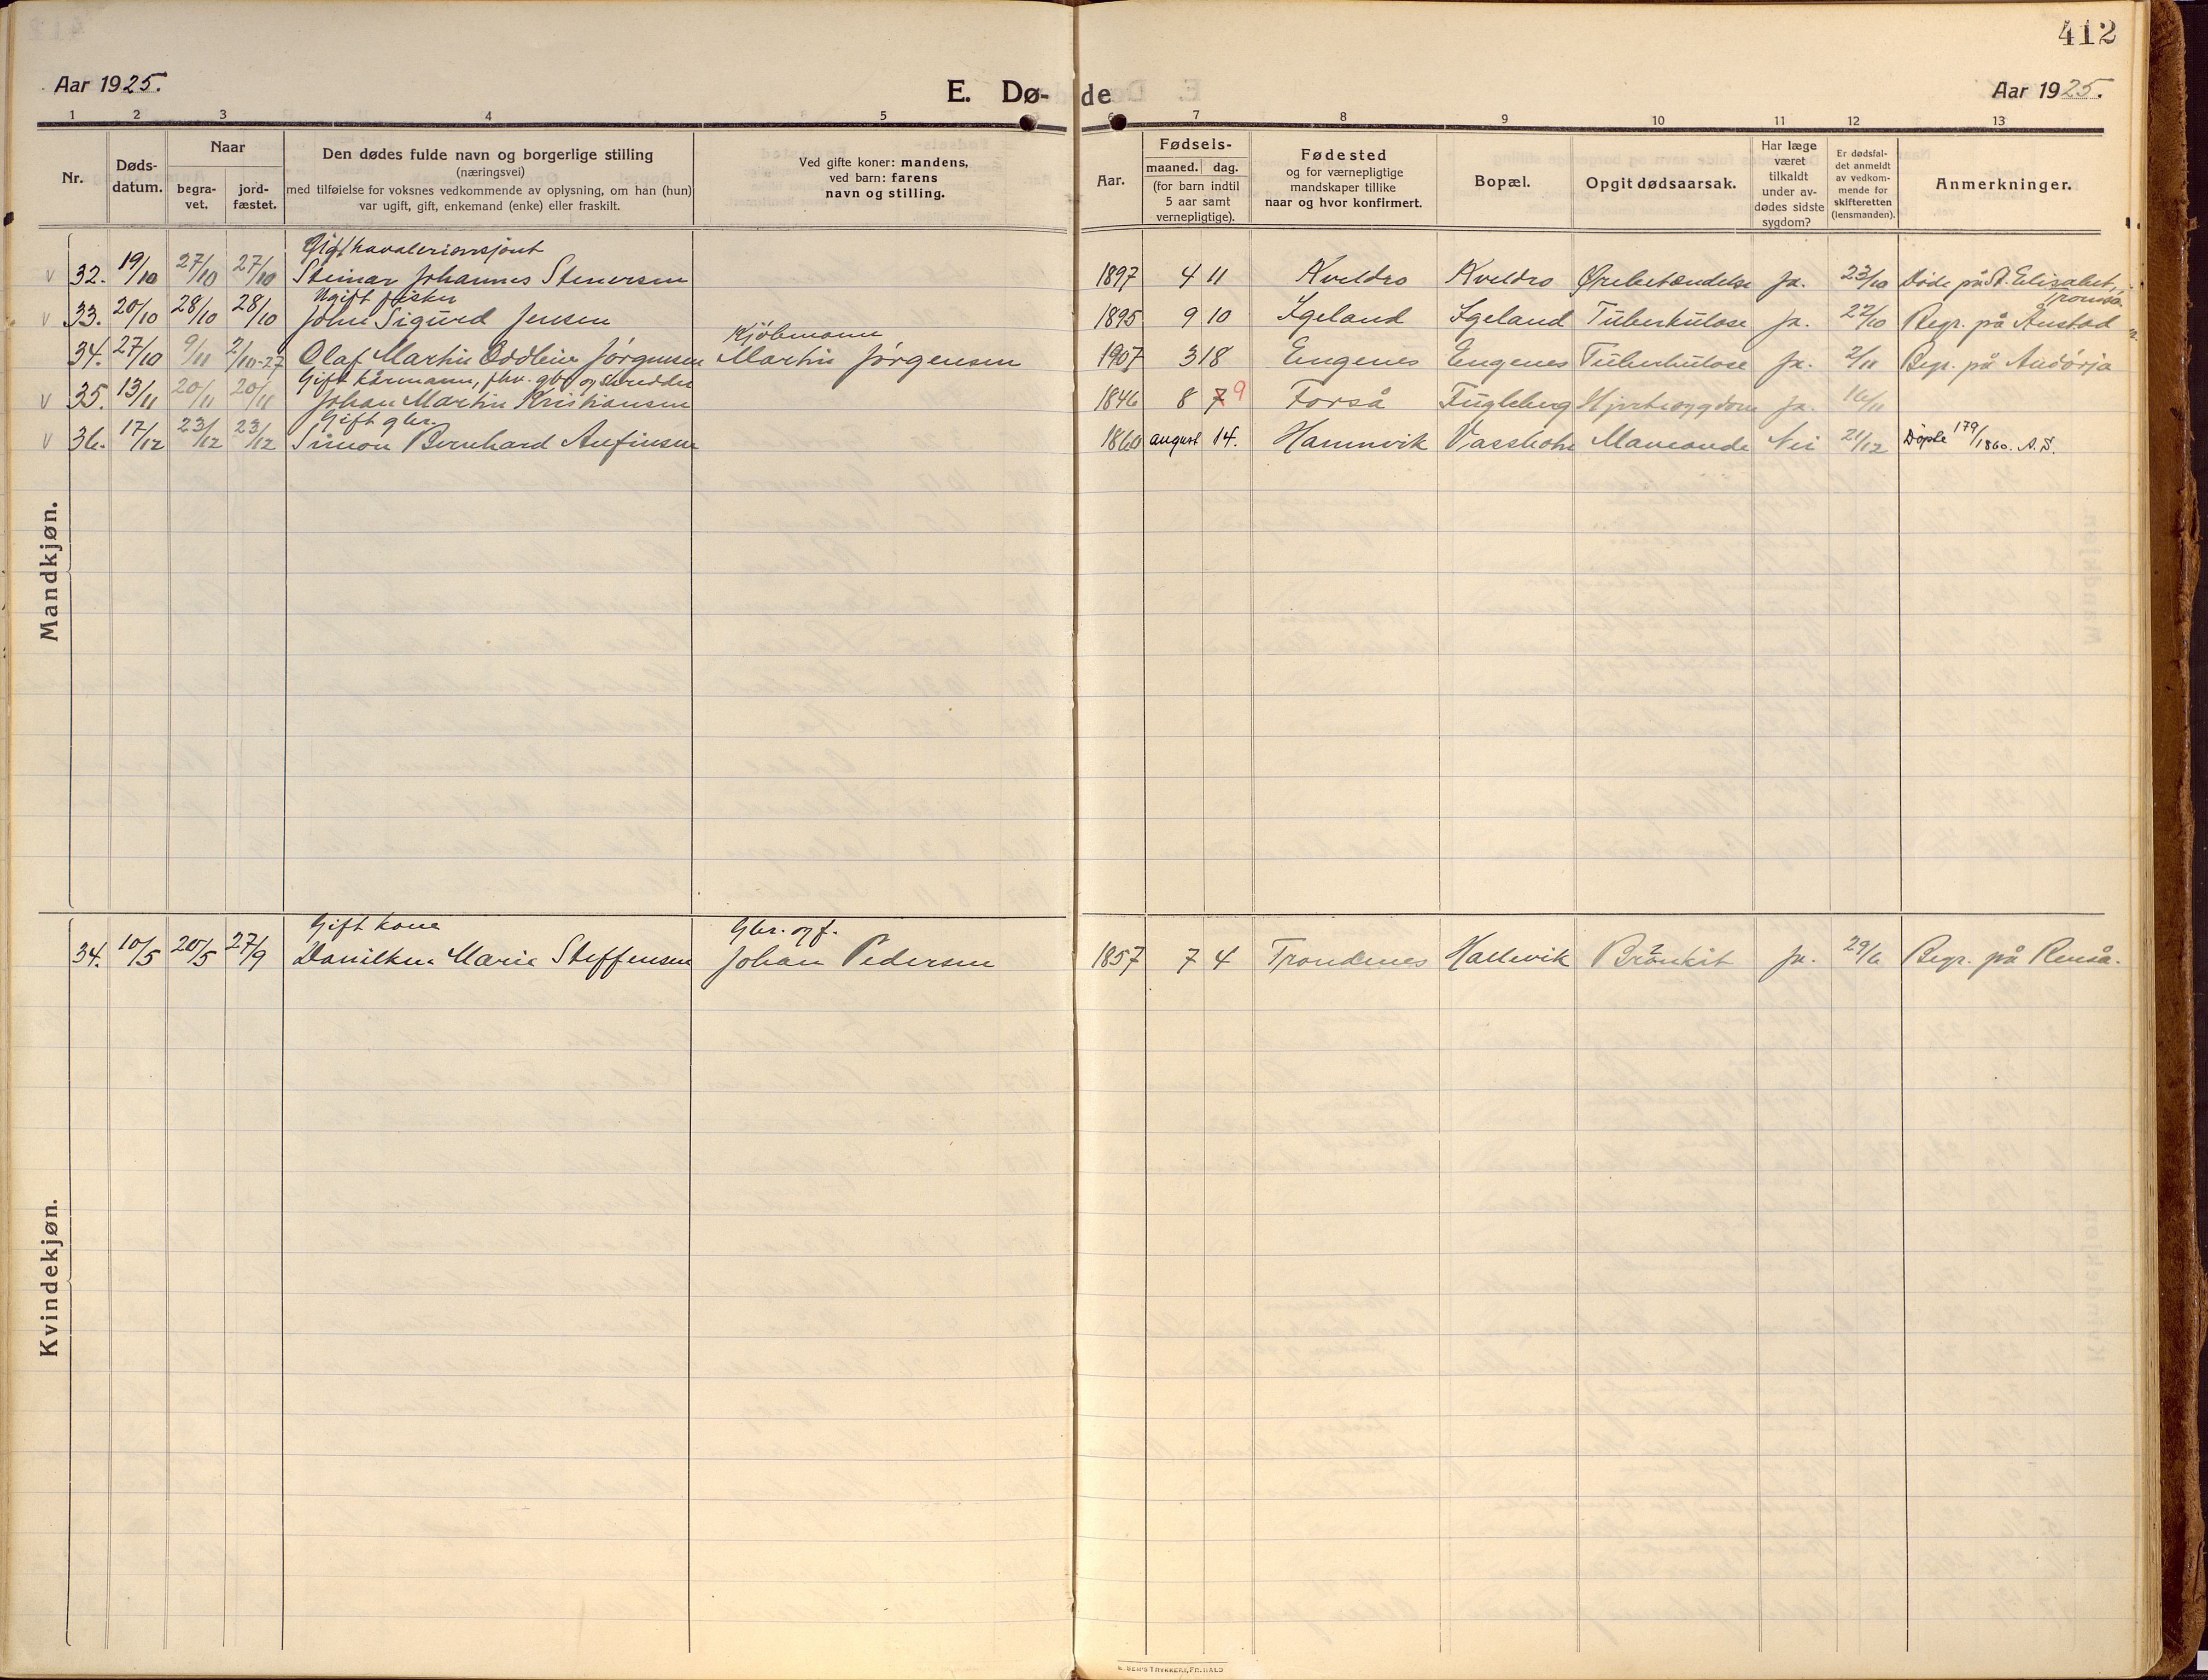 412
Aar 1925.
E. Dø-
de
Aar 1925.
1 2 3 4 5 6 7 8 9 10 11 12 13
Nr.
Døds-
datum.
Naar
begra-
vet.
jord-
fæstet.
Den dødes fulde navn og borgerlige stilling
(næringsvei)
med tilføielse for voksnes vedkommende av oplysning, om han (hun)
var ugift, gift, enkemand (enke) eller fraskilt.
Ved gifte koner: mandens,
ved barn: farens
navn og stilling.
Aar.
Fødsels-
maaned. dag.
(for barn indtil
5 aar samt
vernepligtige).
Fødested
og for værnepligtige
mandskaper tillike
naar og hvor konfirmert.
Bopæl.
Opgit dødsaarsak.
Har læge
været
tilkaldt
under av-
dødes sidste
sygdom?
Er dødsfal-
det anmeldt
av vedkom-
mende for
skifteretten
(lensmanden).
Anmerkninger.
Mandkjøn.
Gift kavalerisersjant
v 32. 19/10 27/10 27/10 Steinar Johannes Stenersen 1897 4 11 Kveldro Kveldro Ørebetændelse Ja. 23/10 Døde på St. Elisabet,
Tromsø
Ugift fisker
v 33. 20/10 28/10 28/10 John Sigurd Jensen 1895 9 10 Igeland Igeland Tuberkulose Ja. 22/10 Begr. på Ånstad
Kjøbmann
34. 27/10 9/11 2/10-27 Olaf Martin Oddleiv Jørgensen Martin Jørgensen 1907 3 18 Engenes Engenes Tuberkulose Ja. 2/11 Begr. på Andørja
Gift kårmann, fhv. gbr og skredder
v 35. 13/11 20/11 20/11 Johan Martin Kristiansen 1846 8 7 9 Forså Fugleberg Hjertesygdom Ja. 16/11
Gift gbr.
v 36. 17/12 23/12 23/12 Simon Bernhard Anfinsen 1860 august 14. Hamnvik Vasskotn Mavesonde Nei 21/12 Døpte 17 9/1860. A.S.
Kvindekjøn.
Gift kone Gbr. og f.
34. 10/5 20/5 27/9 Danilkea Marie Steffensen Johan Pedersen 1857 7 4 Trondenes Hallevik Brånkit Ja. 29/6 Begr. på Renså.